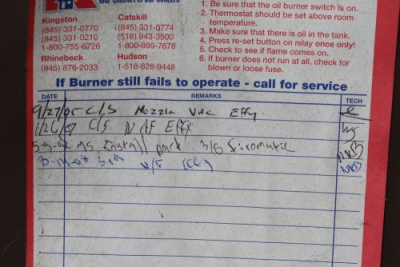 Kingston
(845) 331-0770
(845) 331-0210
1-800-755-6726
Rhinebeck
(845) 876-2033
Catskill
(845) 331-0774
(518) 943-3500
1-800-889-7678
Hudson
1-518-828-9448
1. Be sure that the oil burner switch is on.
2. Thermostat should be set above room
temperature.
3. Make sure that there is oil in the tank.
4. Press re-set button on relay once only!
5. Check to see if flame comes on.
6. If burner does not run at all, check for
blown or loose fuse.
If Burner still fails to operate - call for service
DATE REMARKS TECH
9/27/05 C/S Nozzle Vac Effy
1/26/07 C/S N/F Effy
Install pack
N/F